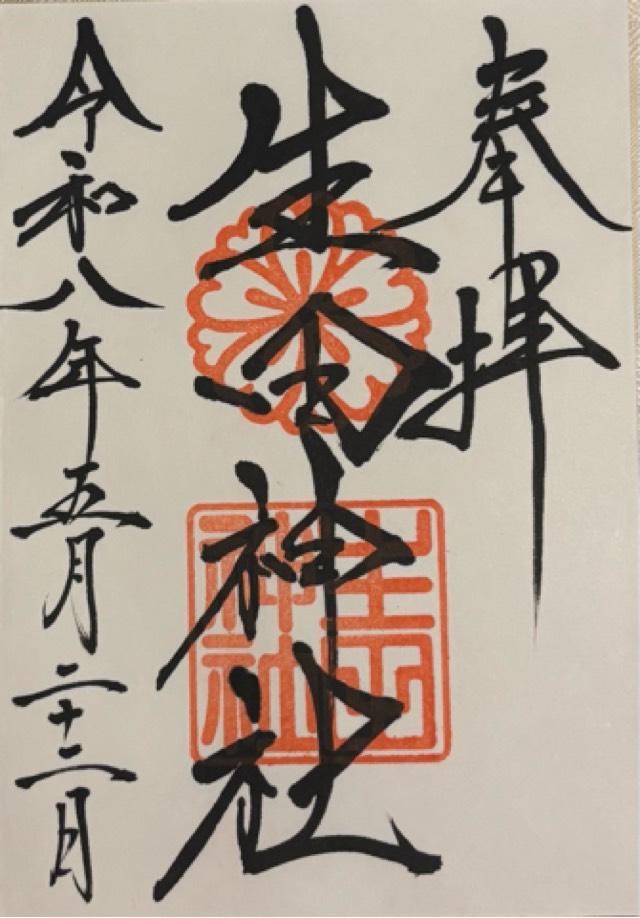 奉拝
生田神社
令和八年五月二十二日
生田神社